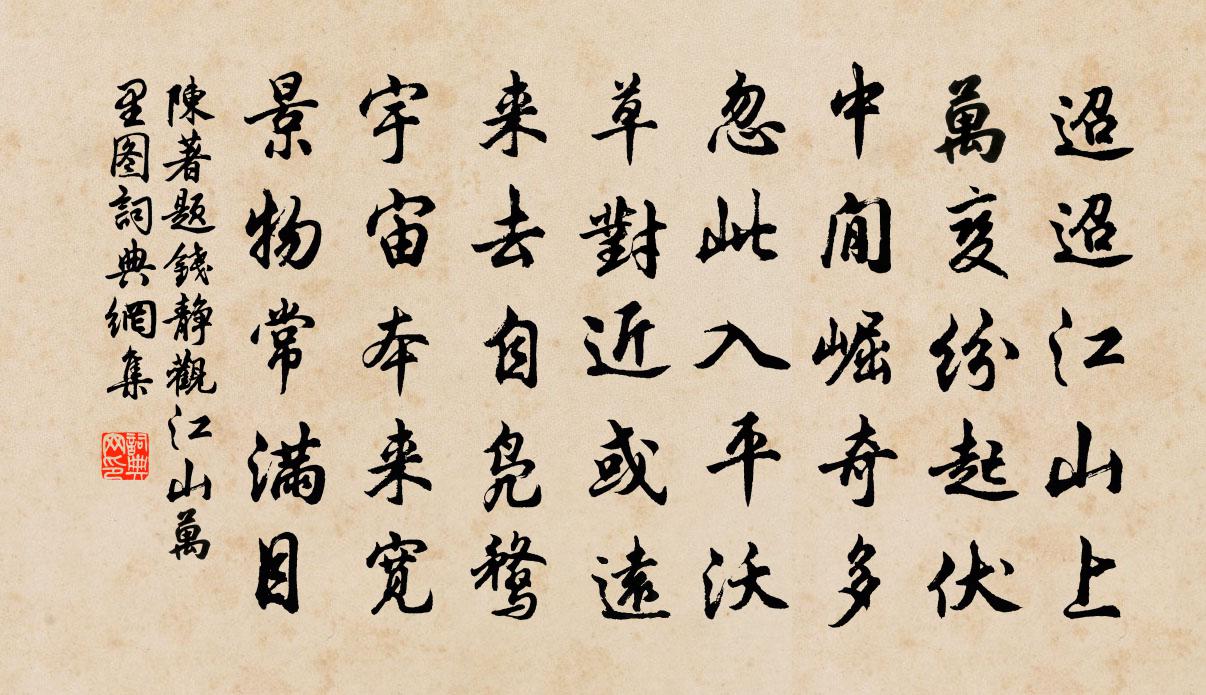 迢迢江山上
萬变纷起伏
中間崛奇多
忽此入平沃
草對近或遠
来去自鳧鶩
宇宙本来寬
景物常满目
陳著題錢静觀江山萬
里图詞典網集
詞典
网印